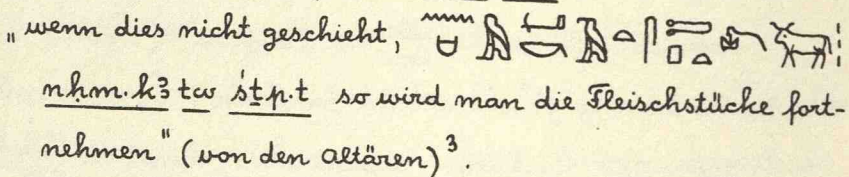 „wenn dies nicht geschieht,
nḥm·kꜣ tw śṯp·t so wird man die Fleischstücke fort-
nehmen“ (von den Altären)³.